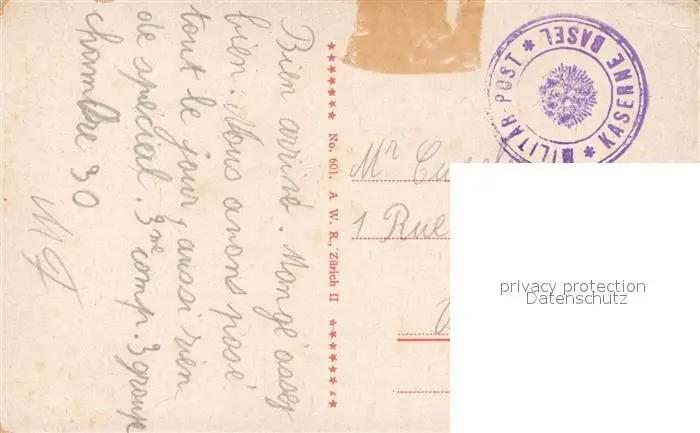 Bien arrivé. Mangé assez
bien. Nous avons posé
tout le jour, aussi rien
de spécial. 3me comp. 3 groupe
chambre 30
No. 601. A. W. R., Zürich II
MILITÄR-POST * KASERNE BASEL *
Mr
1 Rue
privacy protection
Datenschutz